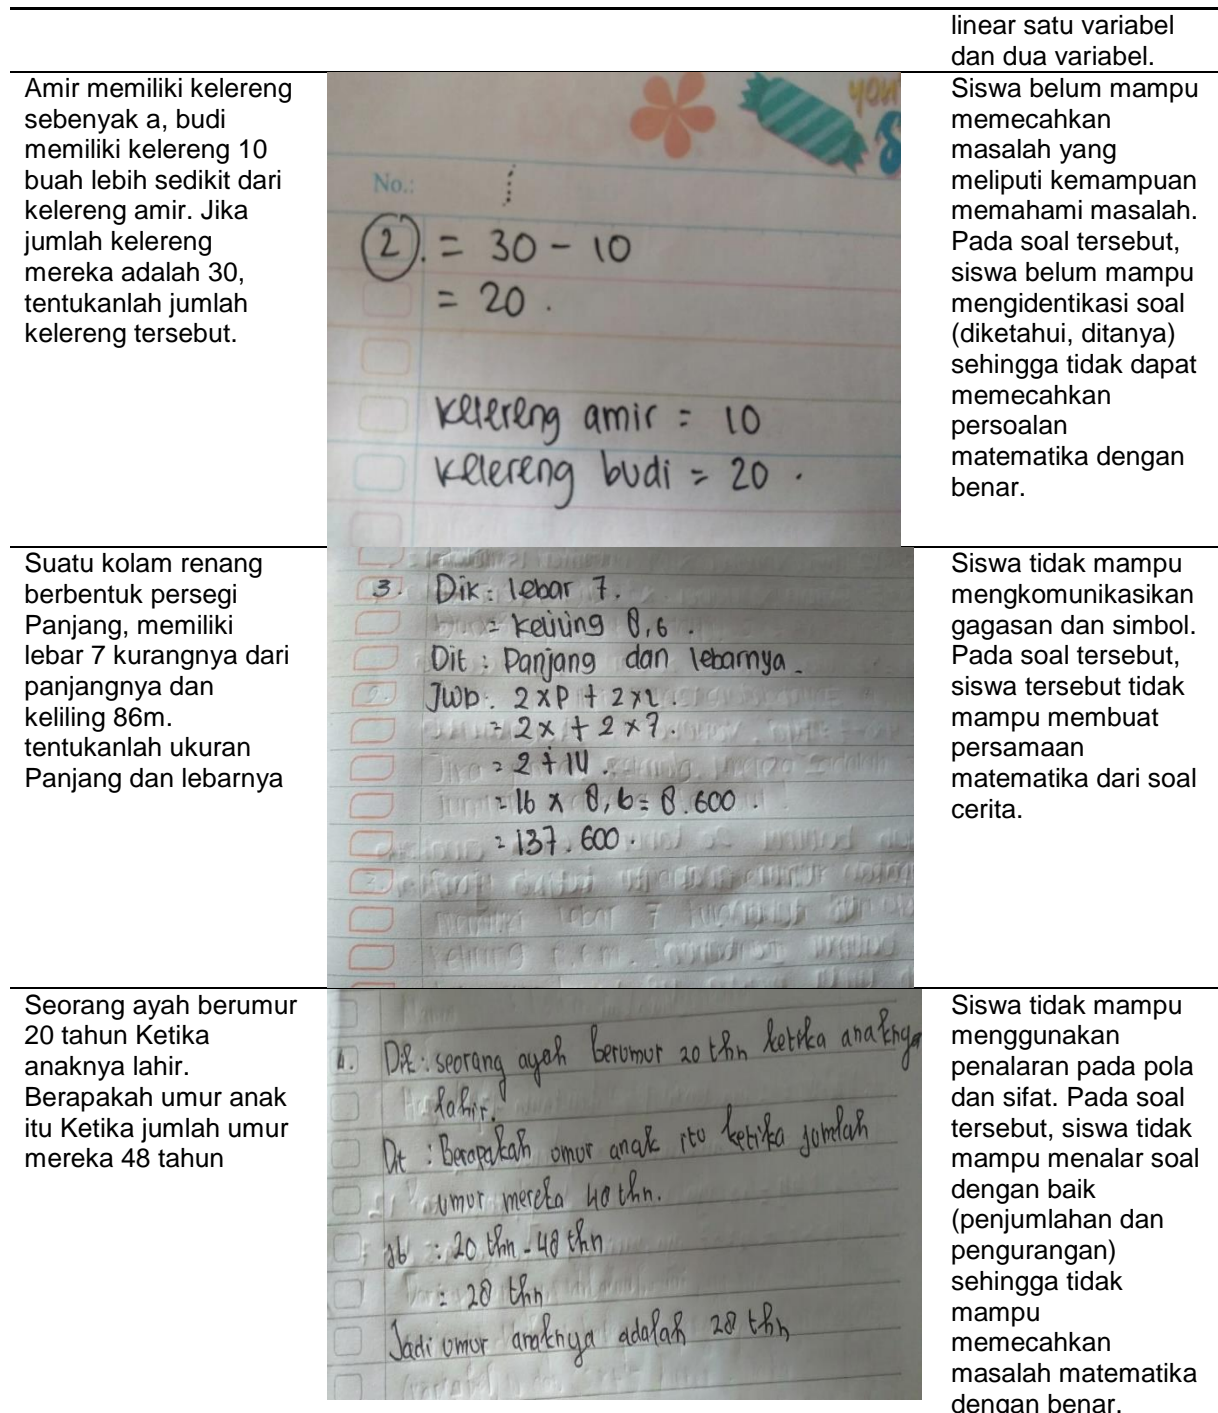 linear satu variabel
dan dua variabel.
Amir memiliki kelereng
sebenyak a, budi
memiliki kelereng 10
buah lebih sedikit dari
kelereng amir. Jika
jumlah kelereng
mereka adalah 30,
tentukanlah jumlah
kelereng tersebut.
No.:
2. = 30 - 10
= 20 .
kelereng amir = 10
kelereng budi = 20 .
Siswa belum mampu
memecahkan
masalah yang
meliputi kemampuan
memahami masalah.
Pada soal tersebut,
siswa belum mampu
mengidentikasi soal
(diketahui, ditanya)
sehingga tidak dapat
memecahkan
persoalan
matematika dengan
benar.
Suatu kolam renang
berbentuk persegi
Panjang, memiliki
lebar 7 kurangnya dari
panjangnya dan
keliling 86m.
tentukanlah ukuran
Panjang dan lebarnya
3. Dik: lebar 7.
= keliling 8,6 .
Dit : Panjang dan lebarnya.
Jwb: 2 x P + 2 x l .
= 2 x + 2 x 7.
= 2 + 14 .
= 16 x 8,6 = 8.600 .
= 137.600 .
Siswa tidak mampu
mengkomunikasikan
gagasan dan simbol.
Pada soal tersebut,
siswa tersebut tidak
mampu membuat
persamaan
matematika dari soal
cerita.
Seorang ayah berumur
20 tahun Ketika
anaknya lahir.
Berapakah umur anak
itu Ketika jumlah umur
mereka 48 tahun
4. Dik : seorang ayah berumur 20 thn ketika anaknya
lahir.
Dit : Berapakah umur anak itu ketika jumlah
umur mereka 48 thn.
Jb : 20 thn - 48 thn
: 28 thn
Jadi umur anaknya adalah 28 thn
Siswa tidak mampu
menggunakan
penalaran pada pola
dan sifat. Pada soal
tersebut, siswa tidak
mampu menalar soal
dengan baik
(penjumlahan dan
pengurangan)
sehingga tidak
mampu
memecahkan
masalah matematika
dengan benar.